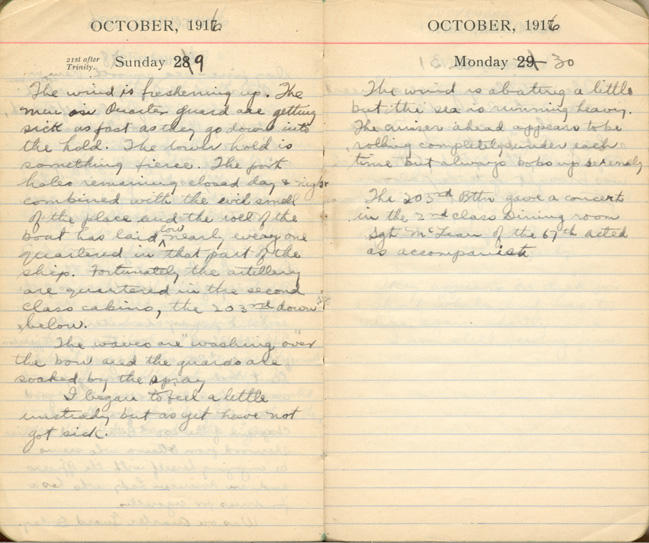 OCTOBER, 1916
21st after
Trinity.
Sunday 29
The wind is freshening up. The
men on Quarter guard are getting
sick as fast as they go down into
the hold. The lower hold is
something fierce. The port
holes remaining closed day & night
combined with the evil smell
of the place and the roll of the
boat has laid low nearly everyone
quartered in that part of the
ship. Fortunately the artillery
are quartered in the second
class cabins, the 203rd down
below.
The waves are "washing over"
the bow and the guards are
soaked by the spray
I began to feel a little
unsteady but as yet have not
got sick.
OCTOBER, 1916
Monday 30
The wind is abating a little
but the sea is running heavy.
The cruiser ahead appears to be
rolling completely under each
time but always bobs up serenely
The 203rd Bttn gave a concert
in the 2nd class Dining room
Sgt McLean of the 67th acted
as accompanist